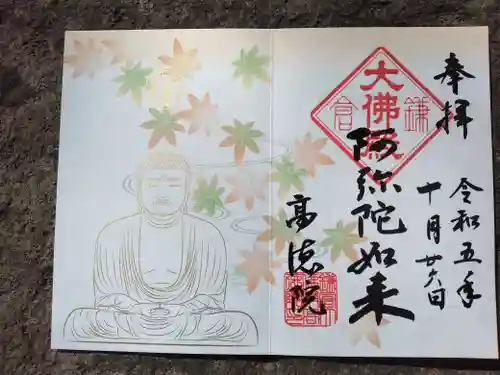 奉拝
令和五年
十月廿六日
大佛殿
鎌
倉
阿弥陀如来
高徳院